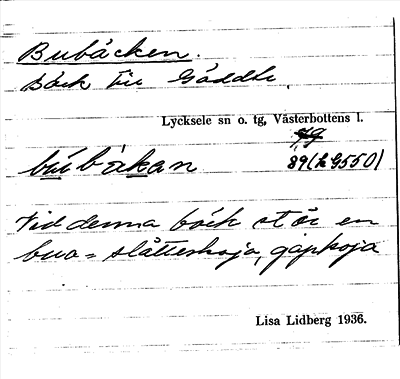 Bubäcken.
Bäck till Gäddtr.
Lycksele sn o. tg, Västerbottens l.
bu̇́bäkan 89 (L G550)
Vid denna bäck står en
buo = slåtterkoja, gapkoja
Lisa Lidberg 1936.